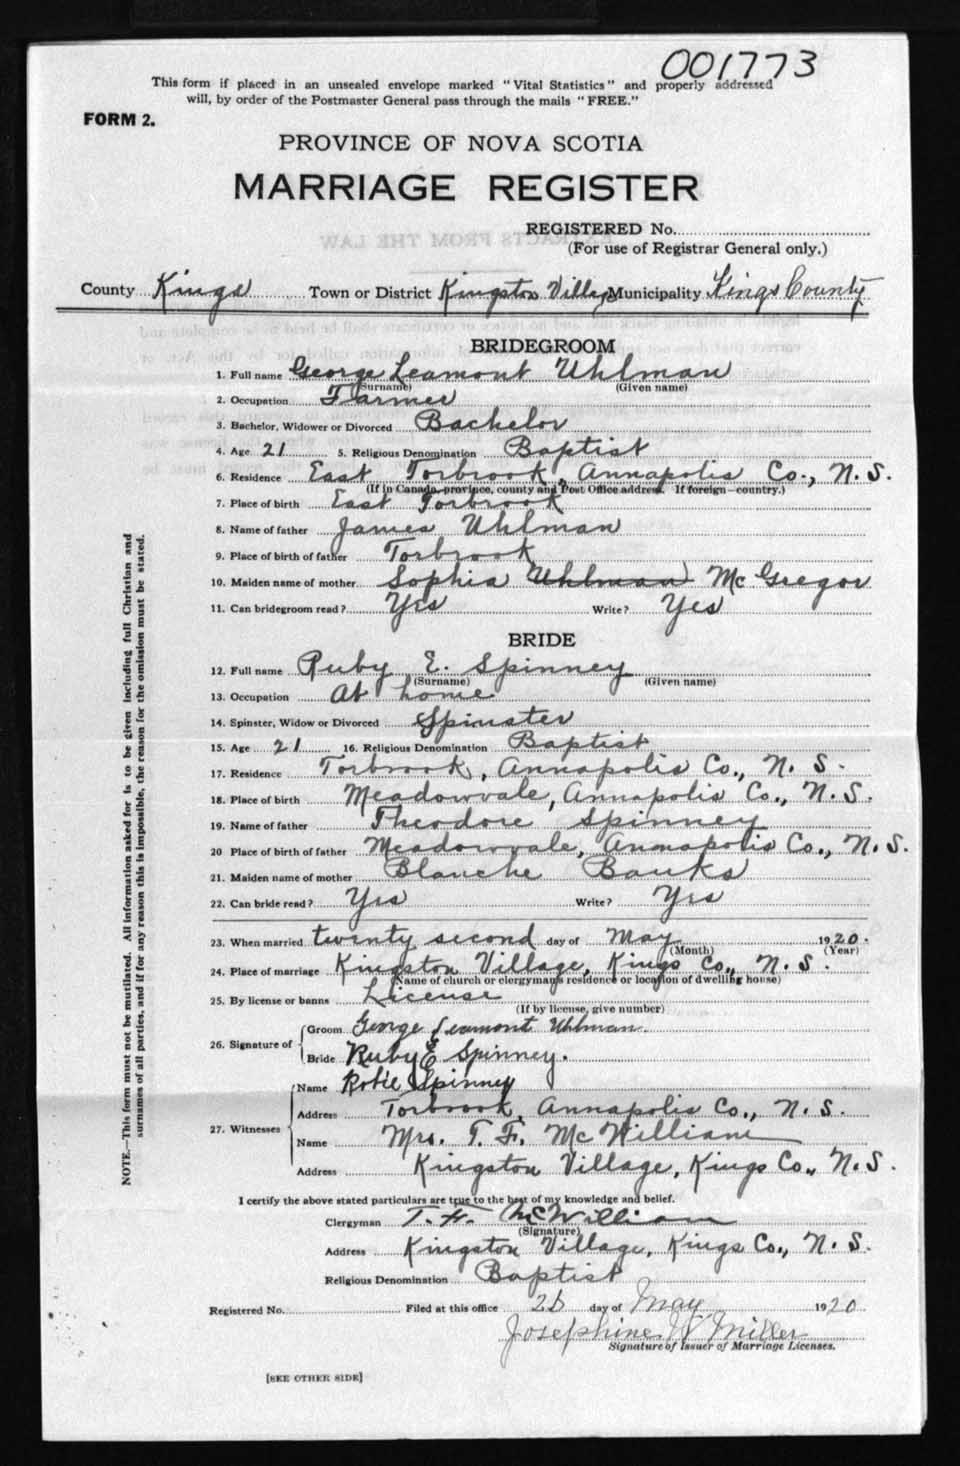 001773
This form if placed in an unsealed envelope marked "Vital Statistics" and properly addressed
will, by order of the Postmaster General pass through the mails "FREE."
FORM 2.
PROVINCE OF NOVA SCOTIA
MARRIAGE REGISTER
REGISTERED No.
(For use of Registrar General only.)
County Kings Town or District Kingston Village Municipality Kings County
BRIDEGROOM
1. Full name George Leamont Uhlman
(Surname) (Given name)
2. Occupation Farmer
3. Bachelor, Widower or Divorced Bachelor
4. Age 21 5. Religious Denomination Baptist
6. Residence East Torbrook, Annapolis Co., N.S.
(If in Canada, province, county and Post Office address. If foreign—country.)
7. Place of birth East Torbrook
8. Name of father James Uhlman
9. Place of birth of father Torbrook
10. Maiden name of mother Sophia Uhlman McGregor
11. Can bridegroom read? Yes Write? Yes
BRIDE
12. Full name Ruby E. Spinney
(Surname) (Given name)
13. Occupation At home
14. Spinster, Widow or Divorced Spinster
15. Age 21 16. Religious Denomination Baptist
17. Residence Torbrook, Annapolis Co., N. S.
18. Place of birth Meadowvale, Annapolis Co., N.S.
19. Name of father Theodore Spinney
20 Place of birth of father Meadowvale, Annapolis Co., N.S.
21. Maiden name of mother Blanche Banks
22. Can bride read? Yes Write? Yes
23. When married twenty second day of May 1920.
(Month) (Year)
24. Place of marriage Kingston Village, Kings Co., N. S.
(Name of church or clergyman's residence or location of dwelling house)
25. By license or banns License
(If by license, give number)
26. Signature of Groom George Leamont Uhlman.
Bride Ruby E Spinney.
27. Witnesses Name Robie Spinney
Address Torbrook, Annapolis Co., N. S.
Name Mrs. T. F. McWilliam
Address Kingston Village, Kings Co., N.S.
I certify the above stated particulars are true to the best of my knowledge and belief.
Clergyman T. F. McWilliam
(Signature)
Address Kingston Village, Kings Co., N. S.
Religious Denomination Baptist
Registered No. Filed at this office day of May 1920
Josephine W Miller
Signature of Issuer of Marriage Licenses.
[SEE OTHER SIDE]
NOTE.—This form must not be mutilated. All information asked for is to be given including full Christian and
surnames of all parties, and if for any reason this is impossible, the reason for the omission must be stated.